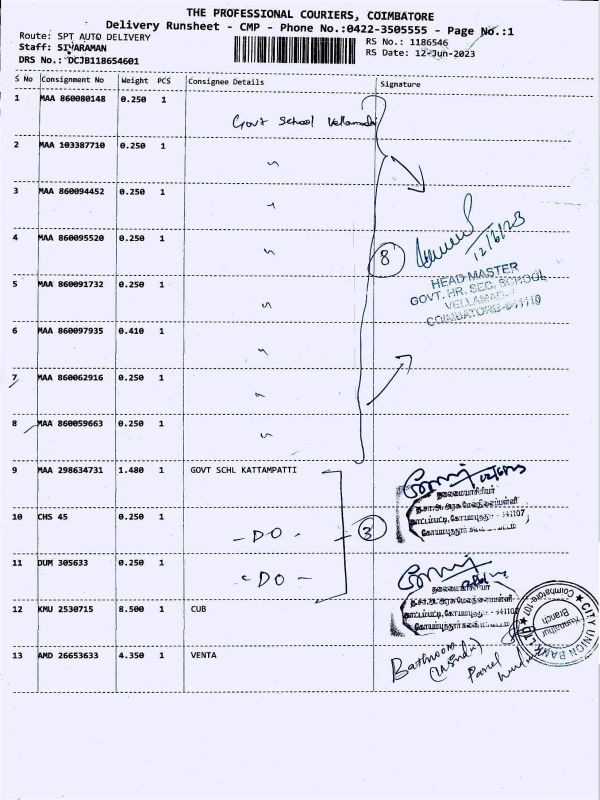 THE PROFESSIONAL COURIERS, COIMBATORE
Delivery Runsheet - CMP - Phone No.:0422-3505555 - Page No.:1
Route: SPT AUTO DELIVERY
Staff: SIVARAMAN
DRS No.: DCJB118654601
RS No.: 1186546
RS Date: 12-Jun-2023
S No Consignment No Weight PCS Consignee Details Signature
1 MAA 860080148 0.250 1
Govt School Vellamadai
2 MAA 103387710 0.250 1
3 MAA 860094452 0.250 1
4 MAA 860095520 0.250 1
8
12/6/23
HEAD MASTER
GOVT. HR. SEC. SCHOOL
COIMBATORE-641110
5 MAA 860091732 0.250 1
6 MAA 860097935 0.410 1
7 MAA 860062916 0.250 1
8 MAA 860059663 0.250 1
9 MAA 298634731 1.480 1 GOVT SCHL KATTAMPATTI
12/6/23
தலைமையாசிரியர்
10 CHS 45 0.250 1
-DO-
3
11 DUM 305633 0.250 1
-DO-
தலைமையாசிரியர்
12 KMU 2530715 8.500 1 CUB
CITY UNION BANK LTD
Coimbatore-107
Kunnathur
Branch
13 AMD 26653633 4.350 1 VENTA
Bathroom
Panel